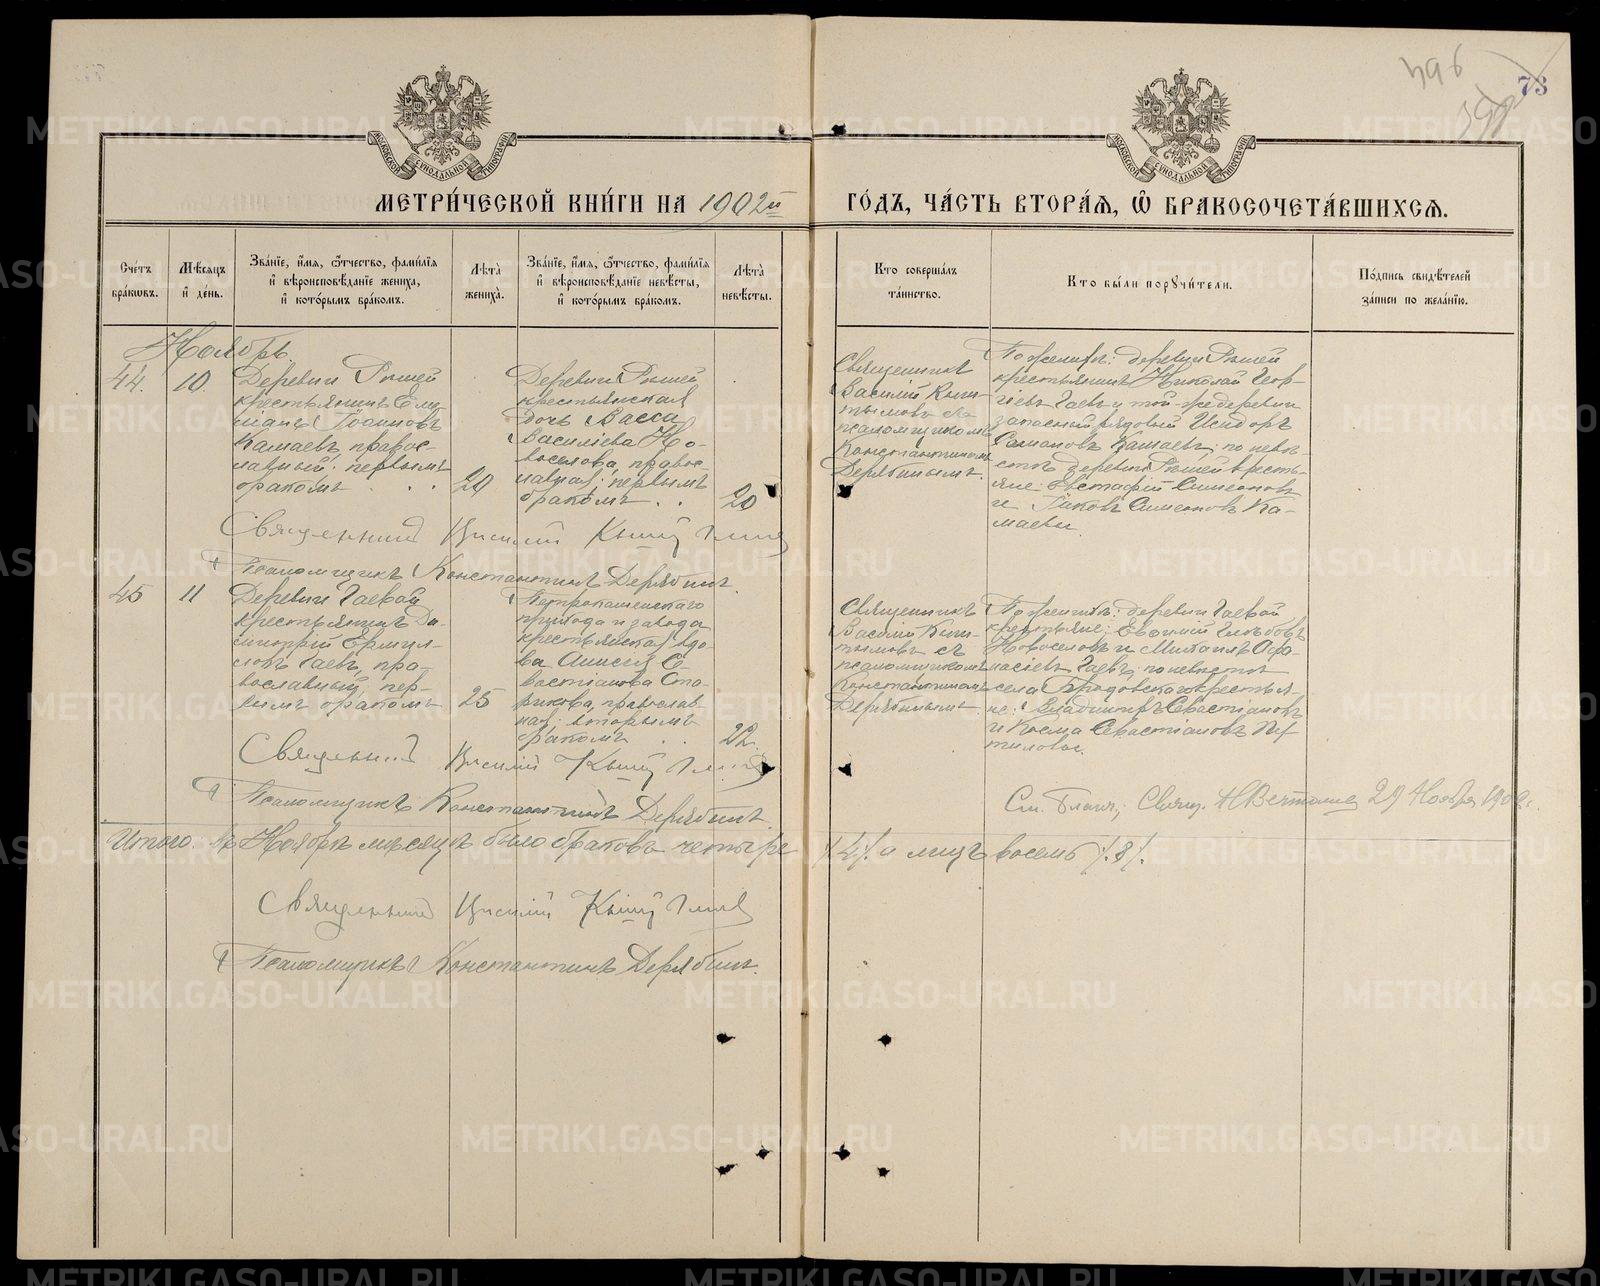 396
73
398
МОСКОВСКОЙ СѴНОДАЛЬНОЙ ТИПОГРАФІИ
МОСКОВСКОЙ СѴНОДАЛЬНОЙ ТИПОГРАФІИ
МЕТРИ́ЧЕСКОЙ КНИ́ГИ НА 1902й
ГО́ДЪ, ЧА́СТЬ ВТОРА́Ѧ, Ѽ БРАКОСОЧЕТА́ВШИХСѦ.
Сче́тъ бра́кѡвъ.
Мѣ́сяцъ и҆ де́нь.
Зва́нїе, и҆́мѧ, ѻ҆́тчество, фами́лїѧ и҆ вѣроисповѣ́данїе жениха̀, и҆ кото́рымъ бра́комъ.
Лѣ́та̀ жениха̀.
Зва́нїе, и҆́мѧ, ѻ҆́тчество, фами́лїѧ и҆ вѣроисповѣ́данїе невѣ́сты, и҆ кото́рымъ бра́комъ.
Лѣ́та̀ невѣ́сты.
Кто̀ соверша́лъ та́инство.
Кто̀ бы́ли порꙋчи́тели.
По́дпись свидѣ́телей за́писи по жела́нїю.
Ноябрь.
44.
10.
Деревни
крестьянинъ Ели-
Іоанновъ
Камаевъ, правос-
лавный; первымъ
бракомъ
20
Деревни
крестьянская
дочь Васса
Васильева Но-
воселова, правос-
лавная; первымъ
бракомъ
20
Священникъ
Василій Кыш-
тымовъ съ
псаломщикомъ
Константиномъ
Дерябинымъ
По женихѣ: деревни
крестьянинъ Николай Геор-
гіевъ Гаевъ и той-же деревни
запасный рядовый Исидоръ
Камаевъ; по невѣ-
стѣ: деревни кресть-
яне: Евстафій Симеоновъ
и Іаковъ Симеоновъ Ка-
маевы.
Священникъ Василій Кыштымовъ
Псаломщикъ Константинъ Дерябинъ.
45
11
Деревни Гаевой
крестьянинъ Ди-
митрій Ермил-
ловъ Гаевъ, пра-
вославный, пер-
вымъ бракомъ
25
Петрокаменскаго
прихода и завода
крестьянская вдо-
ва Анисія Се-
вастіанова Ста-
рикова, православ-
ная; вторымъ
бракомъ
22.
Священникъ
Василій Кыш-
тымовъ съ
псаломщикомъ
Константиномъ
Дерябинымъ
По женихѣ: деревни Гаевой
крестьяне: Евѳимій Глѣбовъ
Новоселовъ и Михаилъ Аѳа-
насіевъ Гаевъ; по невѣстѣ:
села Бродовскаго крестья-
не: Владиміръ Севастіановъ
и Косма Севастіановъ Пе-
тиловы.
Священникъ Василій Кыштымовъ
Псаломщикъ Константинъ Дерябинъ.
Свящ. 29 Ноября 1902 г.
Итого въ Ноябрѣ мѣсяцѣ было браковъ четыре /.4/. а лицъ восемь /.8/.
Священникъ Василій Кыштымовъ
Псаломщикъ Константинъ Дерябинъ.
METRIKI.GASO-URAL.RU